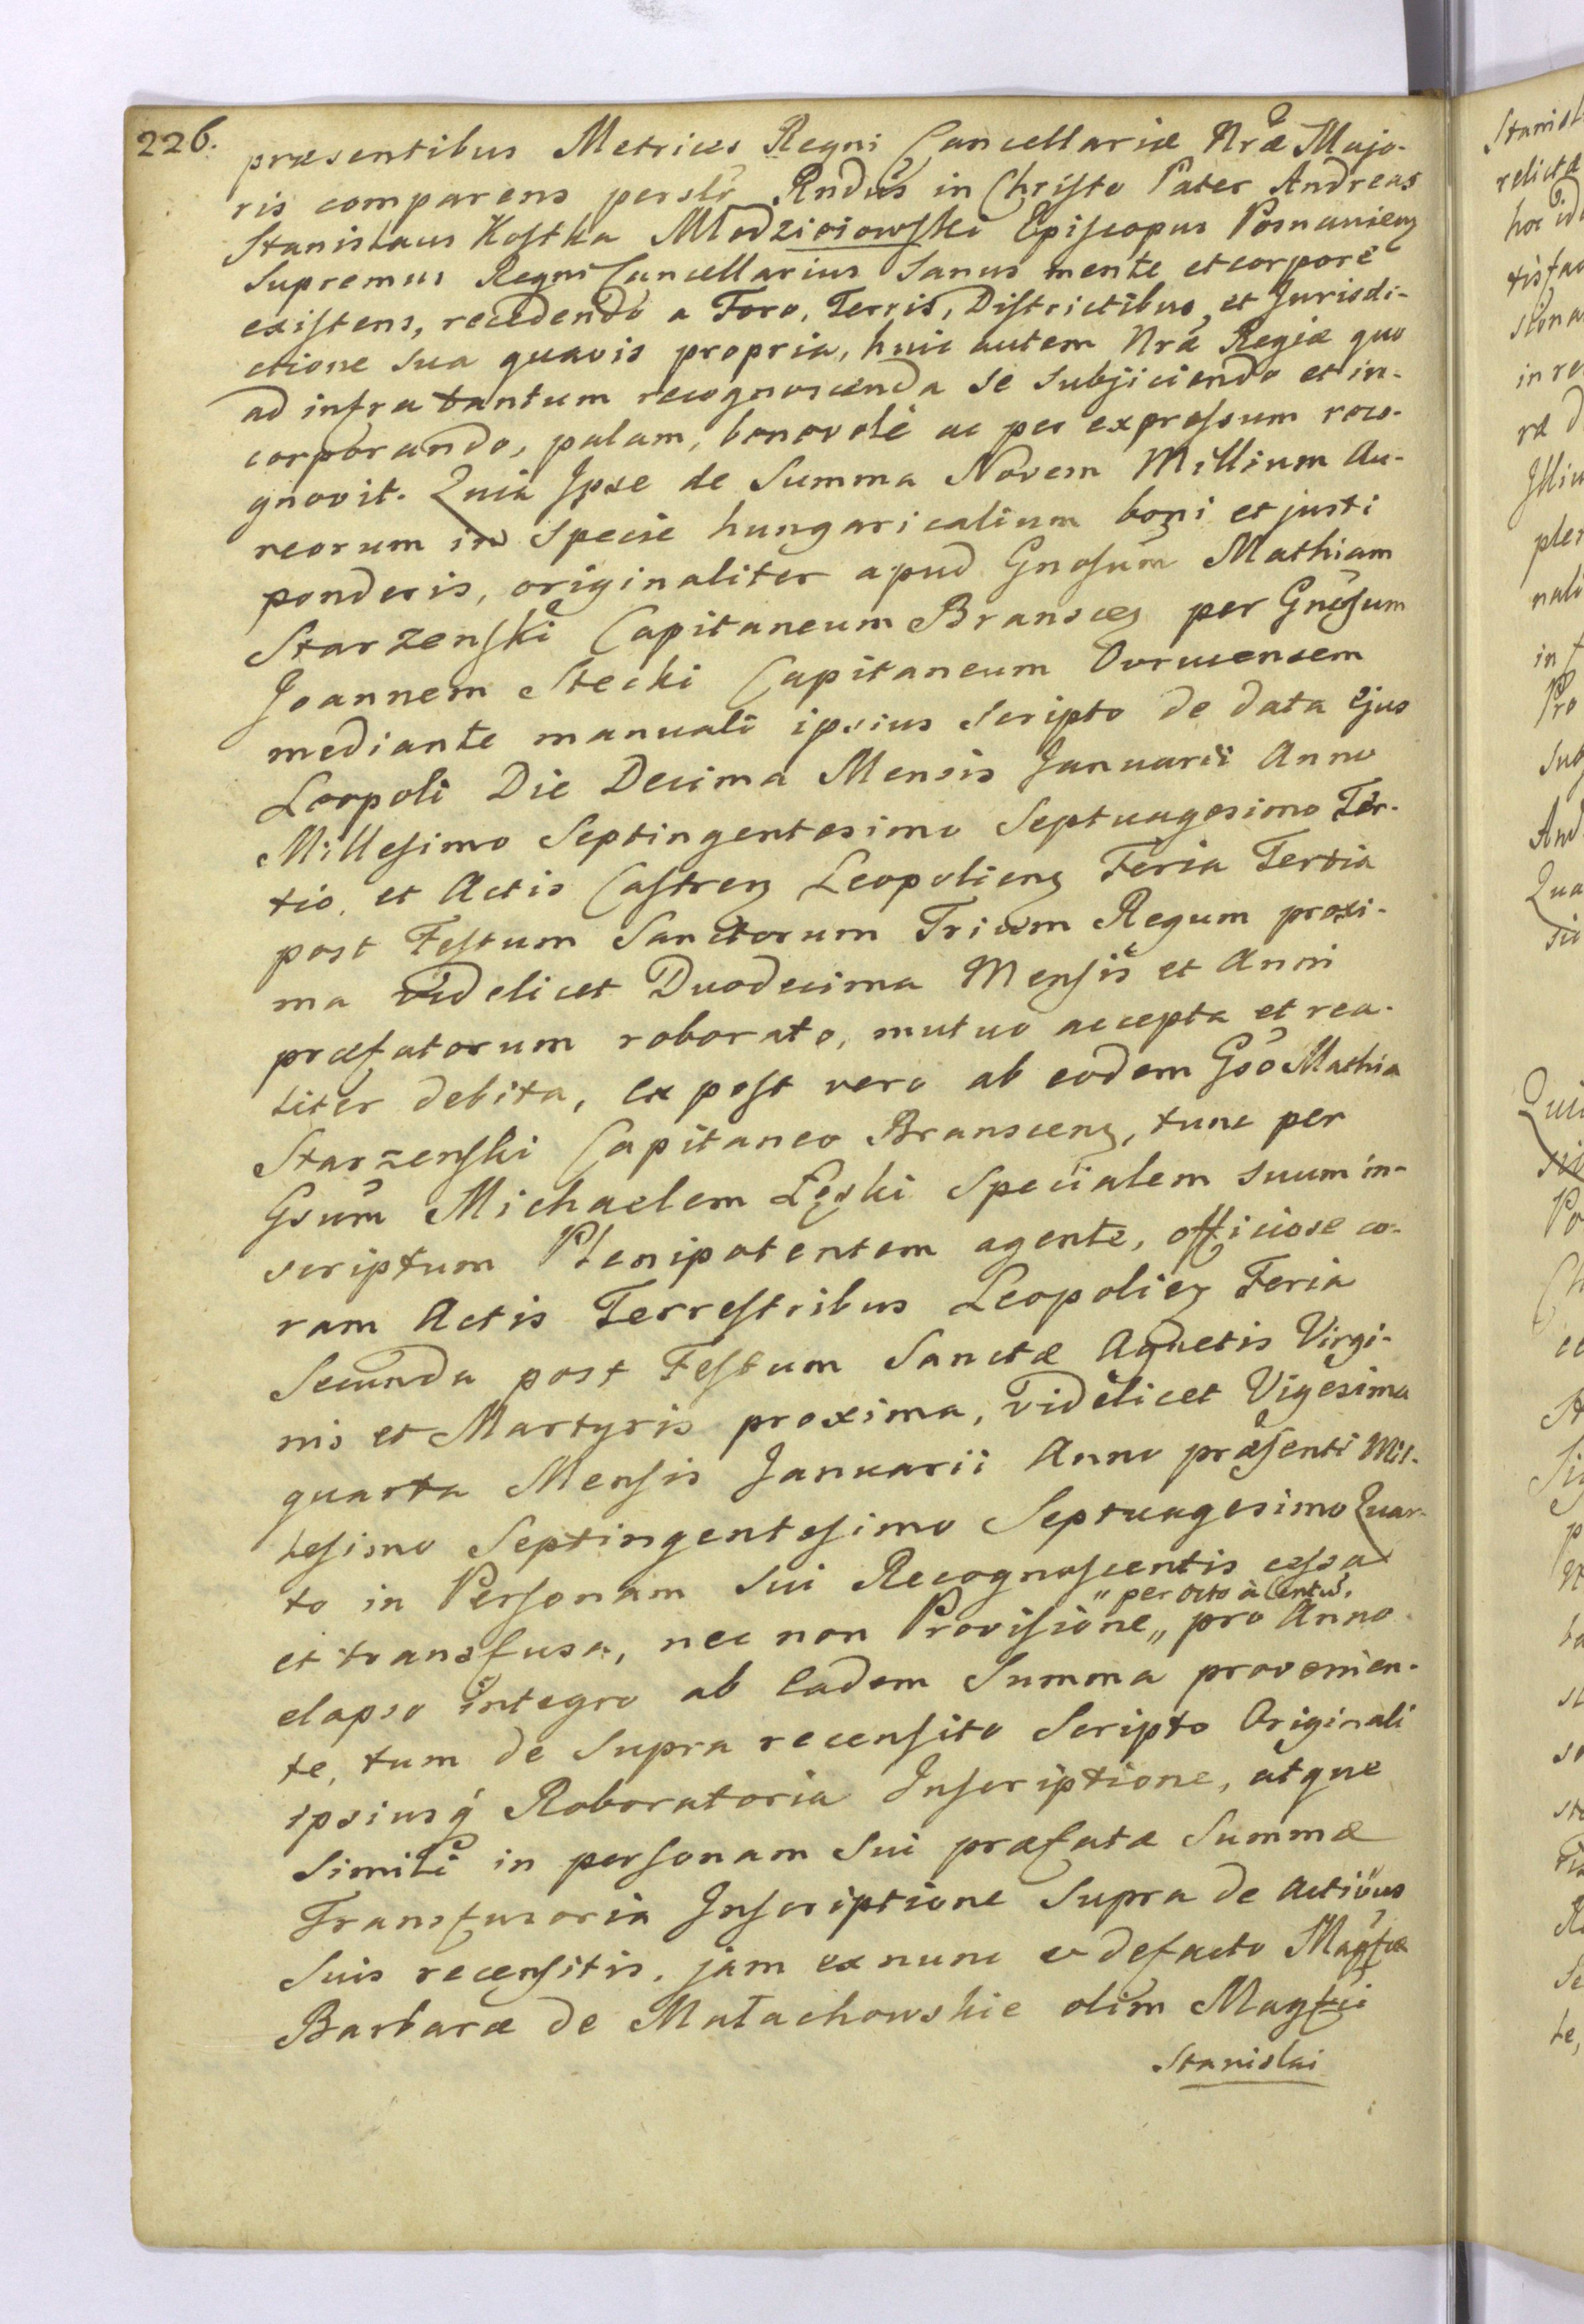 226.
præsentibus Metrices Regni Cancellariæ Nræ Majo-
ris comparens perslr Rndus in Christo Pater Andreas
Stanislaus Kostka Młodzieiowski Episcopus Posnaniens
Supremus Regni Cancellarius Sanus mente et corpore
existens, recedendo a Foro, Terris, Districtibus, et Jurisdi-
ctione sua quavis propria, huic autem Nræ Regiæ quo
ad infra tantum recognoscenda se subjiciendo et in-
corporando, palam, benevole ac per expressum reco-
gnovit. Quia Ipse de Summa Novem Millium Au-
reorum in Specie hungaricalium boni et justi
ponderis, originaliter apud Gnosum Mathiam
Starzenski Capitaneum Bransceñ per Gnosum
Joannem Stecki Capitaneum Ovrucensem
mediante manuali ipsius scripto de data ejus
Leopoli Die Decima Mensis Januarii Anno
Millesimo Septingentesimo Septuagesimo Ter-
tio, et Actis Castrens Leopoliens Feria Tertia
post Festum Sanctorum Trium Regum proxi-
ma videlicet Duodecima Mensis et Anni
præfatorum roborato, mutuo accepta et rea-
liter debita, ex post vero ab eodem Gso Mathia
Starzenski Capitaneo Branscens, tunc per
Gsum Michaelem Łęski Specialem suum in-
scriptum Plenipotentem agente, officiose co-
ram Actis Terrestribus Leopolies Feria
Secunda post Festum Sanctæ Agnetis Virgi-
nis et Martyris proxima, videlicet Vigesima
quarta Mensis Januarii Anno præsenti Mil-
lesimo Septingentesimo Septuagesimo Quar-
to in Personam sui Recognoscentis cessa
"per octo à Centu.
et transfusa, nec non Provisione „ pro Anno
elapso integro ab Eadem Summa provenien-
te, tum de Supra recensito Scripto Originali
ipsiusq́ Roboratoria Inscriptione, atque
Simili in personam Sui præfatæ Summæ
Transfusoria Inscriptione Supra de Actibus
Suis recensitis, jam ex nunc et defacto Magfcæ
Barbaræ de Małachowskie olim Magfci
Stanislai